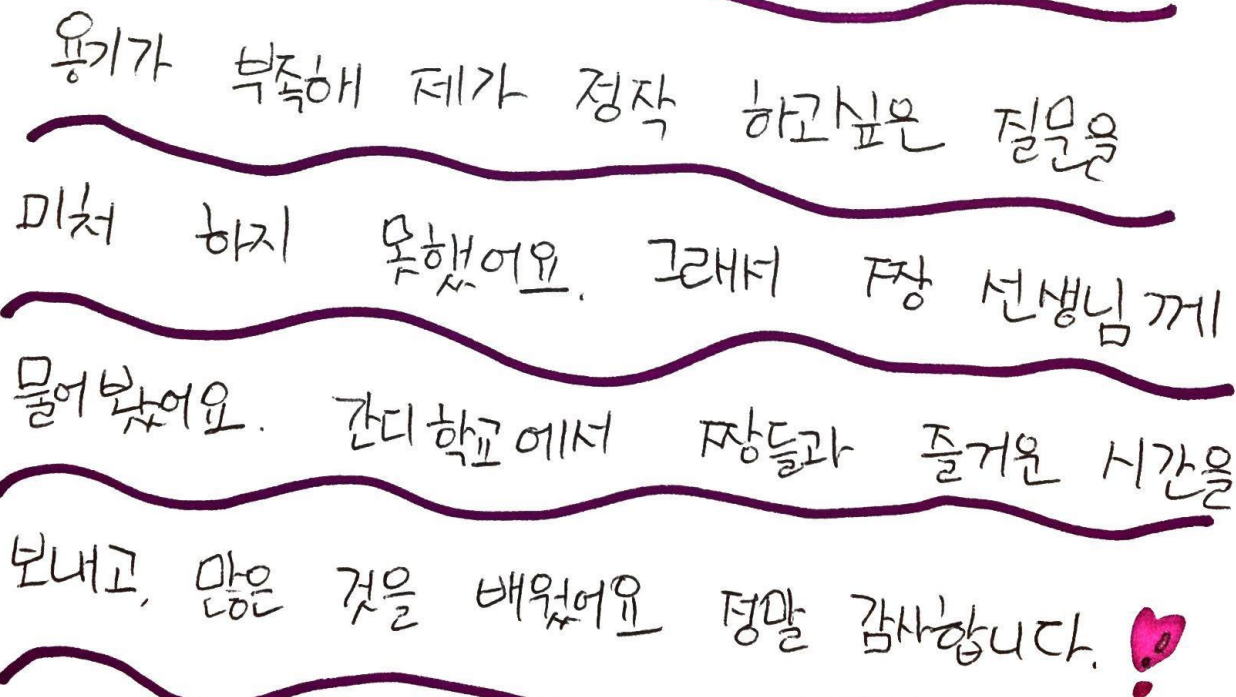 용기가 부족해 제가 정작 하고싶은 질문을
미처 하지 못했어요. 그래서 짱 선생님께
물어봤어요. 간디학교에서 짱들과 즐거운 시간을
보내고, 많은 것을 배웠어요 정말 감사합니다.